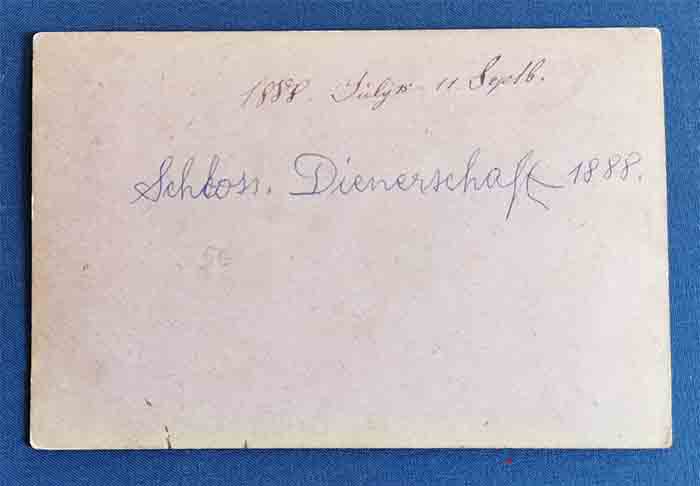 1888. Július 11 Septb.
Schloss. Dienerschaft 1888.